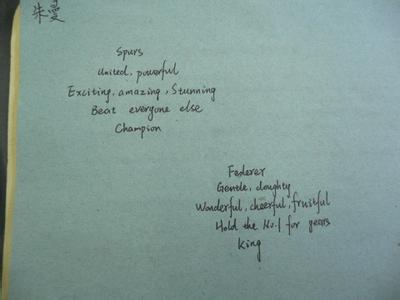 朱曼
Spurs
United, powerful
Exciting, amazing, Stunning
Beat everyone else
Champion
Federer
Gentle, doughty
Wonderful, cheerful, fruitful
Hold the No.1 for years
King